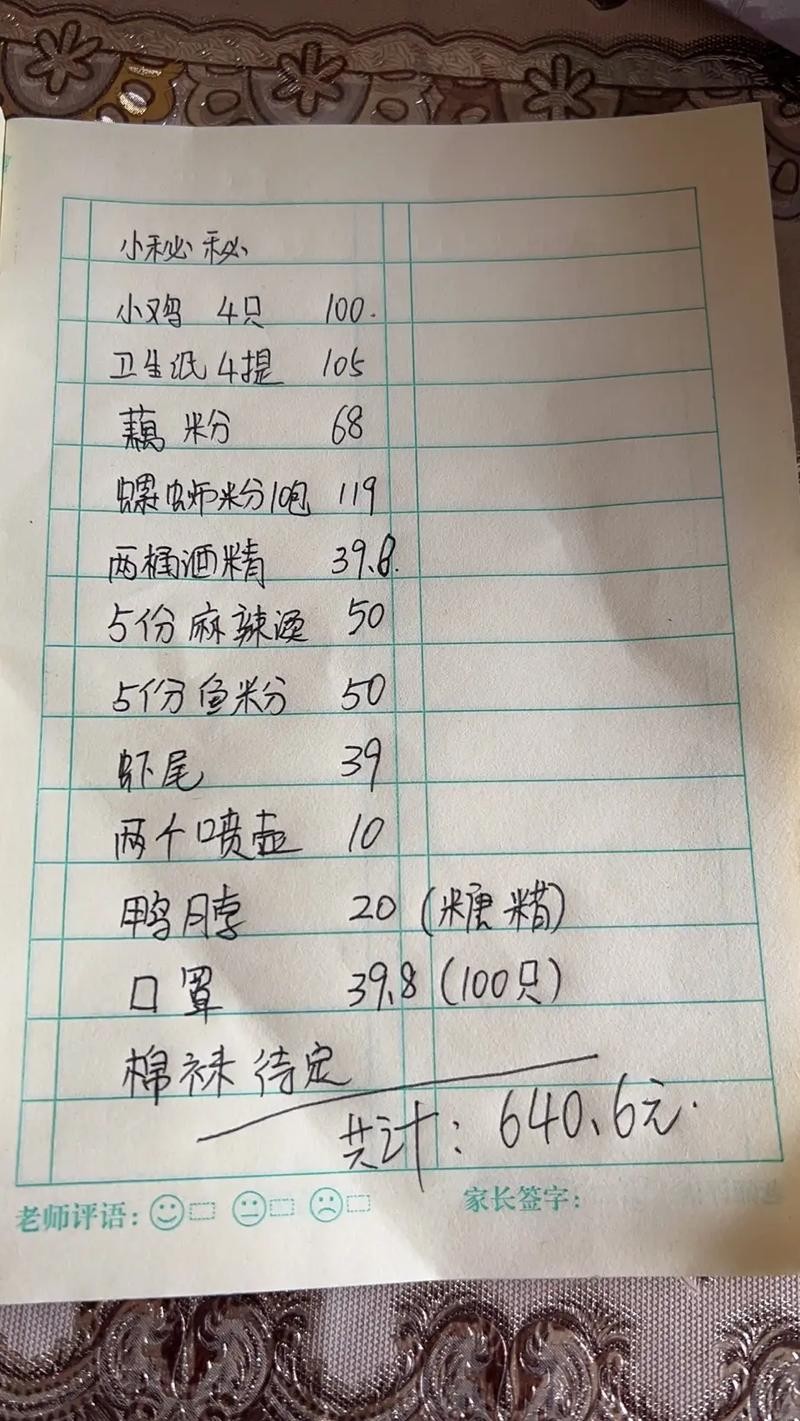 小秘秘
小鸡 4只 100.
卫生纸4提 105
藕粉 68
螺蛳粉10包 119
两桶酒精 39.8.
5份麻辣烫 50
5份鱼粉 50
虾尾 39
两个喷壶 10
鸭脖 20 (糖精)
口罩 39.8 (100只)
棉袜 待定
共计: 640.6元.
老师评语:
家长签字: